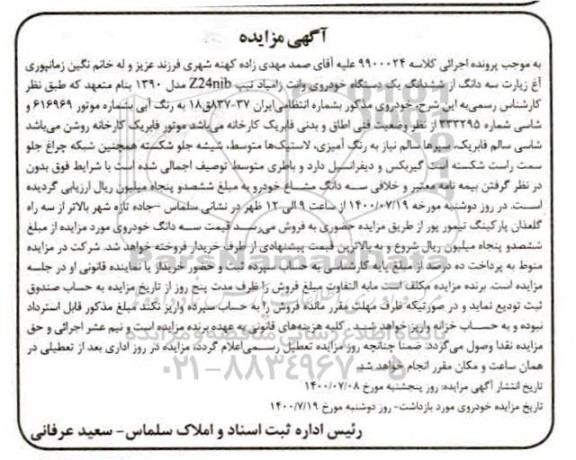 آگهی مزایده
به موجب پرونده اجرائی کلاسه ۹۹۰۰۰۲۴ علیه آقای صمد مهدی زاده کهنه شهری فرزند عزیز و له خانم نگین زمانپوری
آغ زیارت سه دانگ از ششدانگ یک دستگاه خودروی وانت زامیاد تیپ Z24nib مدل ۱۳۹۰ بنام متعهد که طبق نظر
کارشناس رسمی به این شرح، خودروی مذکور بشماره انتظامی ایران ۳۷-۸۳۷ق۱۸ به رنگ آبی بشماره موتور ۶۱۶۹۶۹ و
شاسی شماره ۳۳۳۲۹۵ از نظر وضعیت فنی اطاق و بدنی فابریک کارخانه می‌باشد موتور فابریک کارخانه روشن می‌باشد
شاسی سالم فابریک، سپرها سالم نیاز به رنگ آمیزی، لاستیک‌ها متوسط، شیشه جلو شکسته همچنین شبکه چراغ جلو
سمت راست شکسته است گیربکس و دیفرانسیل دارد و باطری متوسط توصیف اجمالی شده است با شرایط فوق بدون
در نظر گرفتن بیمه نامه معتبر و خلافی سه دانگ مشاع خودرو به مبلغ ششصدو پنجاه میلیون ریال ارزیابی گردیده
است. در روز دوشنبه مورخه ۱۴۰۰/۰۷/۱۹ از ساعت ۹ الی ۱۲ ظهر در نشانی سلماس –جاده تازه شهر بالاتر از سه راه
گلعذان پارکینگ تیمور پور از طریق مزایده حضوری به فروش می‌رسد قیمت سه دانگ خودروی مورد مزایده از مبلغ
ششصدو پنجاه میلیون ریال شروع و به بالاترین قیمت پیشنهادی از طرف خریدار فروخته خواهد شد. شرکت در مزایده
منوط به پرداخت ده درصد از مبلغ پایه کارشناسی به حساب سپرده ثبت و حضور خریدار یا نماینده قانونی او در جلسه
مزایده است. برنده مزایده مکلف است مابه التفاوت مبلغ فروش را ظرف مدت پنج روز از تاریخ مزایده به حساب صندوق
ثبت تودیع نماید و در صورتیکه ظرف مهلت مقرر مانده فروش را به حساب سپرده واریز نکند مبلغ مذکور قابل استرداد
نبوده و به حساب خزانه واریز خواهد شد. کلیه هزینه‌های قانونی به عهده برنده مزایده است و نیم عشر اجرائی و حق
مزایده نقدا وصول می‌گردد. ضمنا چنانچه روز مزایده تعطیل رسمی‌اعلام گردد، مزایده در روز اداری بعد از تعطیلی در
همان ساعت و مکان مقرر انجام خواهد شد.
تاریخ انتشار آگهی مزایده: روز پنجشنبه مورخ ۱۴۰۰/۰۷/۰۸
تاریخ مزایده خودروی مورد بازداشت- روز دوشنبه مورخ ۱۴۰۰/۷/۱۹
رئیس اداره ثبت اسناد و املاک سلماس- سعید عرفانی
ParsNamadData
پایگاه اطلاع رسانی مناقصه و مزایده
۰۲۱-۸۸۳۴۹۶۷۰-۵